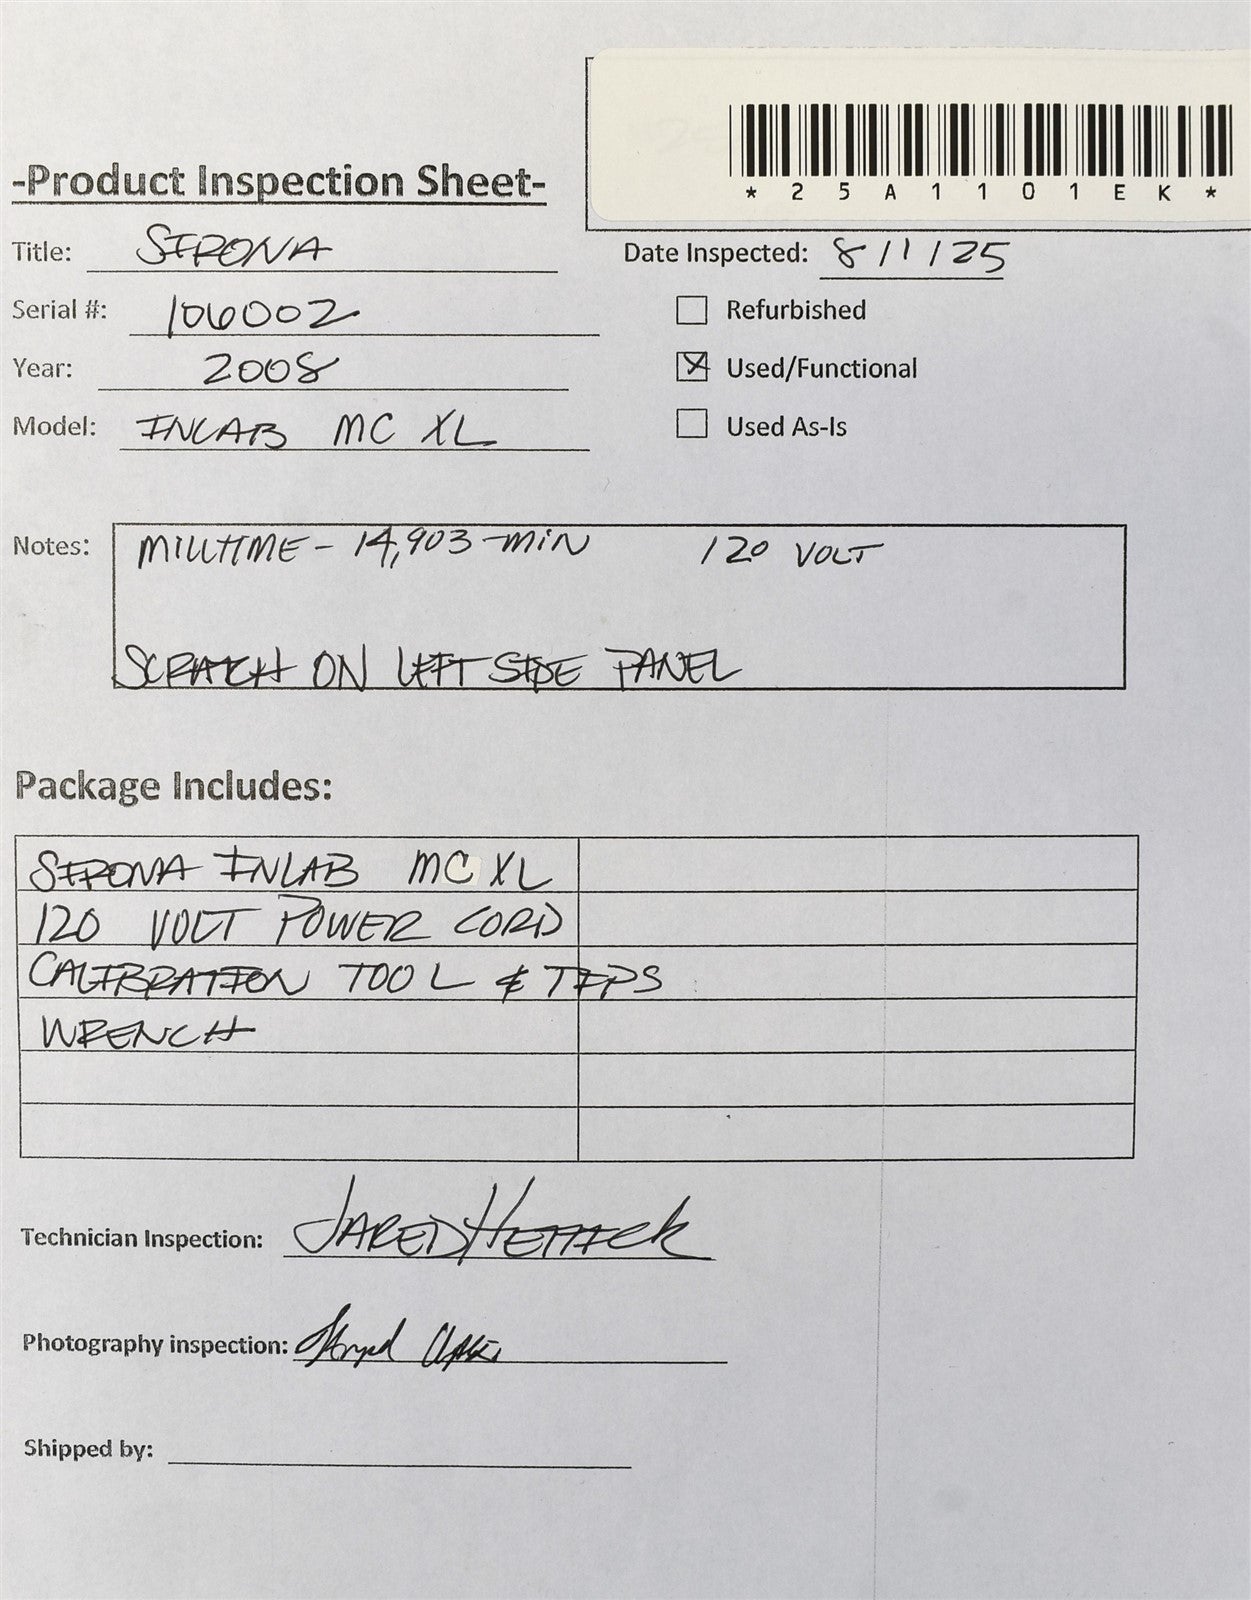 *25A1101EK*
-Product Inspection Sheet-
Title: SIRONA
Date Inspected: 8/1/25
Serial #: 106002
Refurbished
Year: 2008
Used/Functional
Model: INLAB MC XL
Used As-Is
Notes: MILLTIME - 14,903 MIN 120 VOLT
SCRATCH ON LEFT SIDE PANEL
Package Includes:
SIRONA INLAB MC XL
120 VOLT POWER CORD
CALIBRATION TOOL & TIPS
WRENCH
Technician Inspection: JARED
Photography inspection:
Shipped by: